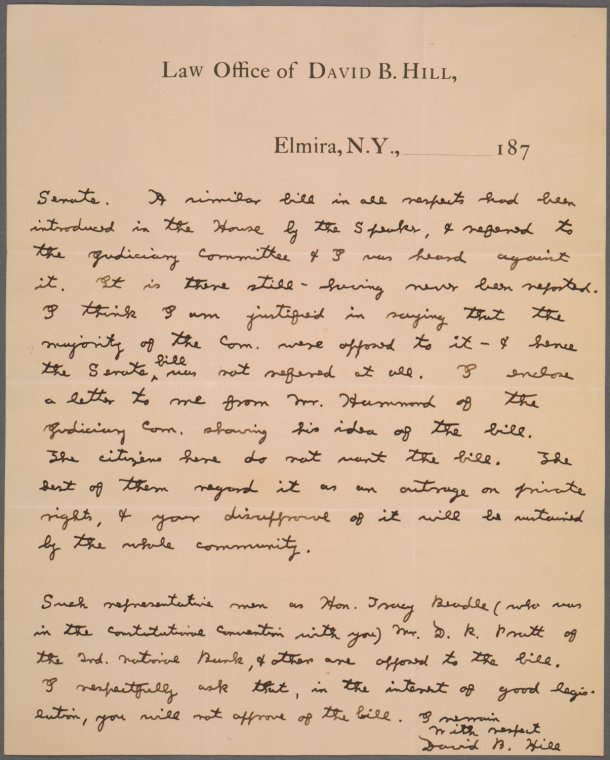 Law Office of David B. Hill,
Elmira, N.Y., 187
Senate. A similar bill in all respects had been
introduced in the House by the Speaker, & referred to
the Judiciary Committee & I was heard against
it. It is there still - having never been reported.
I think I am justified in saying that the
majority of the Com. were opposed to it - & hence
the Senate bill was not referred at all. I enclose
a letter to me from Mr. Hammond of the
Judiciary Com. showing his idea of the bill.
The citizens here do not want the bill. The
best of them regard it as an outrage on private
rights, & your disapproval of it will be sustained
by the whole community.
Such representative men as Hon. Tracy Beadle (who was
in the Constitutional Convention with you) Mr. D. R. Pratt of
the 2nd. National Bank, & other are opposed to the bill.
I respectfully ask that, in the interest of good legis-
lation, you will not approve of the bill. I remain
With respect
David B. Hill